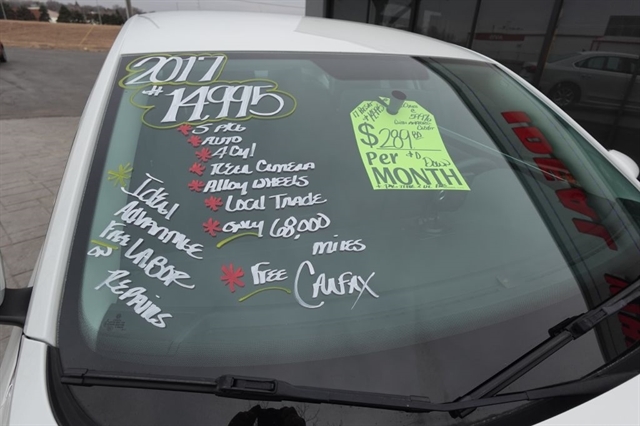 2017
$14,995
* 5 PASS
* AUTO
* 4 Cyl
* REAR CAMERA
* Alloy WHEELS
* LOCAL TRADE
* ONLY 68,000
MILES
* FREE CARFAX
* IDEAL
ADVANTAGE
FREE LABOR
ON
REPAIRS
$289
PER
$0
DOWN
MONTH
TODAY